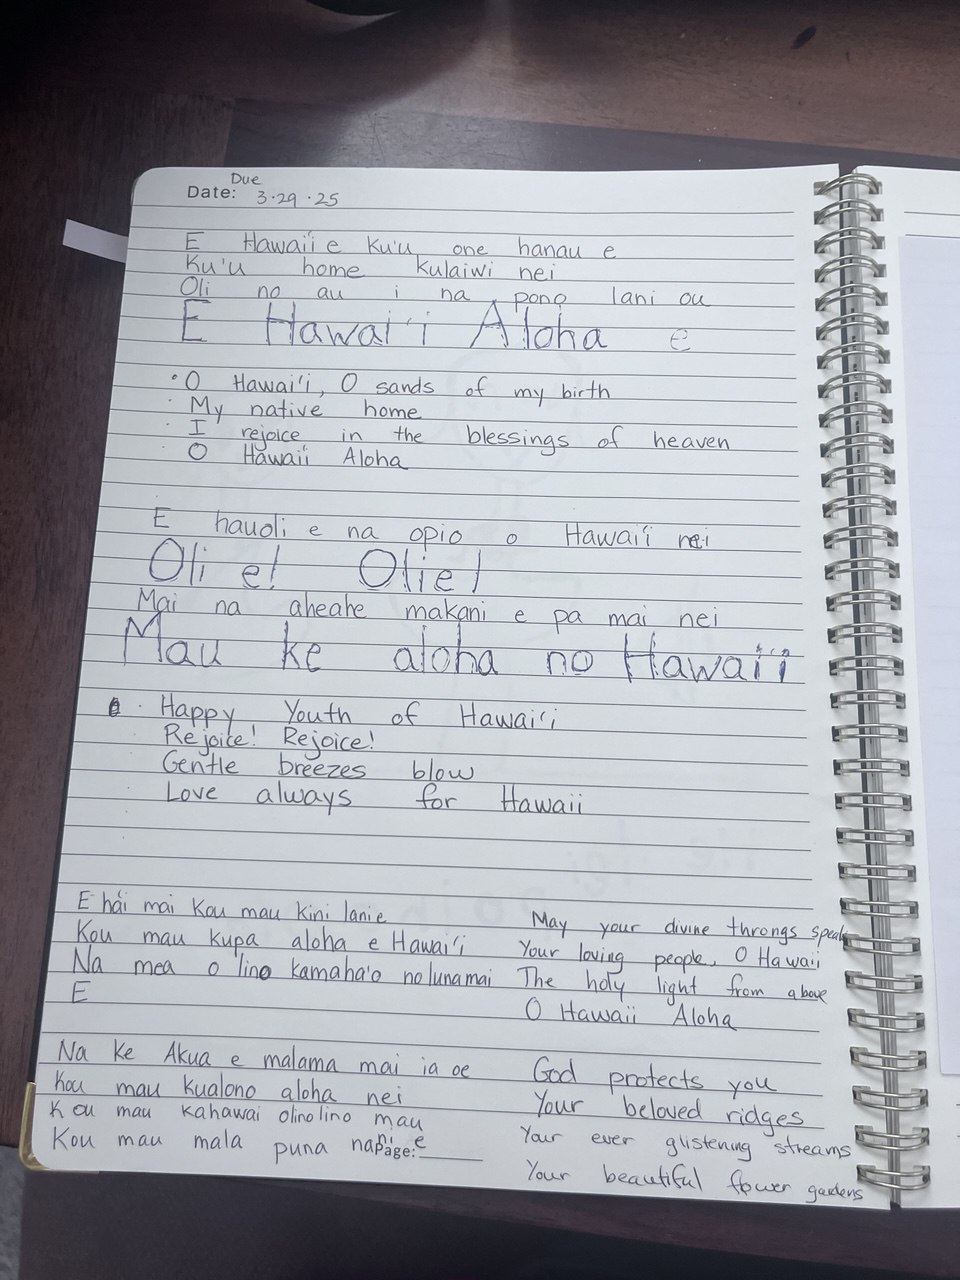 Due
Date: 3.29.25
E Hawaii e Ku'u one hanau e
Ku'u home kulaiwi nei
Oli no au i na pono lani ou
E Hawai'i Aloha e
· O Hawai'i, O sands of my birth
· My native home
· I rejoice in the blessings of heaven
· O Hawaii Aloha
E hauoli e na opio o Hawai'i nei
Oli e! Olie!
Mai na aheahe makani e pa mai nei
Mau ke aloha no Hawai'i
· Happy Youth of Hawai'i
Rejoice! Rejoice!
Gentle breezes blow
Love always for Hawaii
E hái mai Kou mau kini lanie
Kou mau kupa aloha e Hawai'i
Na mea o lino kamaha'o no lunamai
E
May your divine throngs speak
Your loving people, O Hawaii
The holy light from above
O Hawaii Aloha
Na ke Akua e malama mai ia oe
Kou mau kualono aloha nei
Kou mau kahawai olinolino mau
Kou mau mala puna nani e
Page:
God protects you
Your beloved ridges
Your ever glistening streams
Your beautiful flower gardens